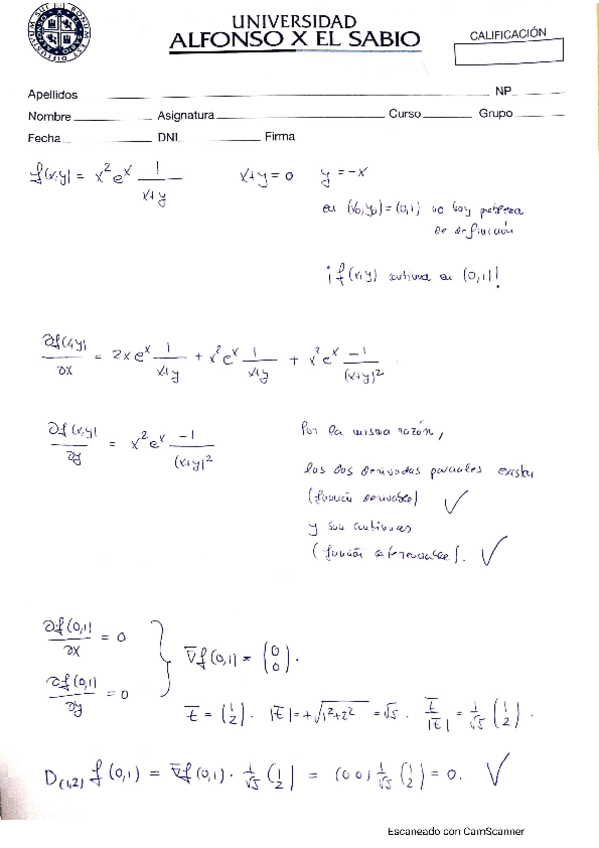 UNIVERSIDAD
ALFONSO X EL SABIO
CALIFICACIÓN
Apellidos NP
Nombre Asignatura Curso Grupo
Fecha DNI Firma
f(x,y) = x² eˣ 1/(x+y) x+y = 0 y = -x
en (x₀,y₀) = (0,1) no hay problema
de definición
¡f(x,y) continua en (0,1)!
∂f(x,y)/∂x = 2x eˣ 1/(x+y) + x² eˣ 1/(x+y) + x² eˣ -1/(x+y)²
∂f(x,y)/∂y = x² eˣ -1/(x+y)²
Por la misma razón,
las dos derivadas parciales existen
(función derivable) ✓
y son continuas
(función diferenciable). ✓
∂f(0,1)/∂x = 0
∂f(0,1)/∂y = 0
∇f(0,1) = (0 0).
t = (1 2). |t| = +√1²+2² = √5. t/|t| = 1/√5 (1 2).
D(1,2) f(0,1) = ∇f(0,1) · 1/√5 (1 2) = (0 0) 1/√5 (1 2) = 0. ✓
Escaneado con CamScanner